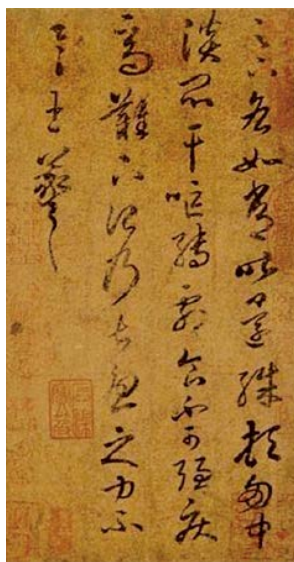 足下各如常昨還殊頓匈中
淡悶干嘔轉劇食不可強疾
高難下治乃甚憂之力不
具王羲之